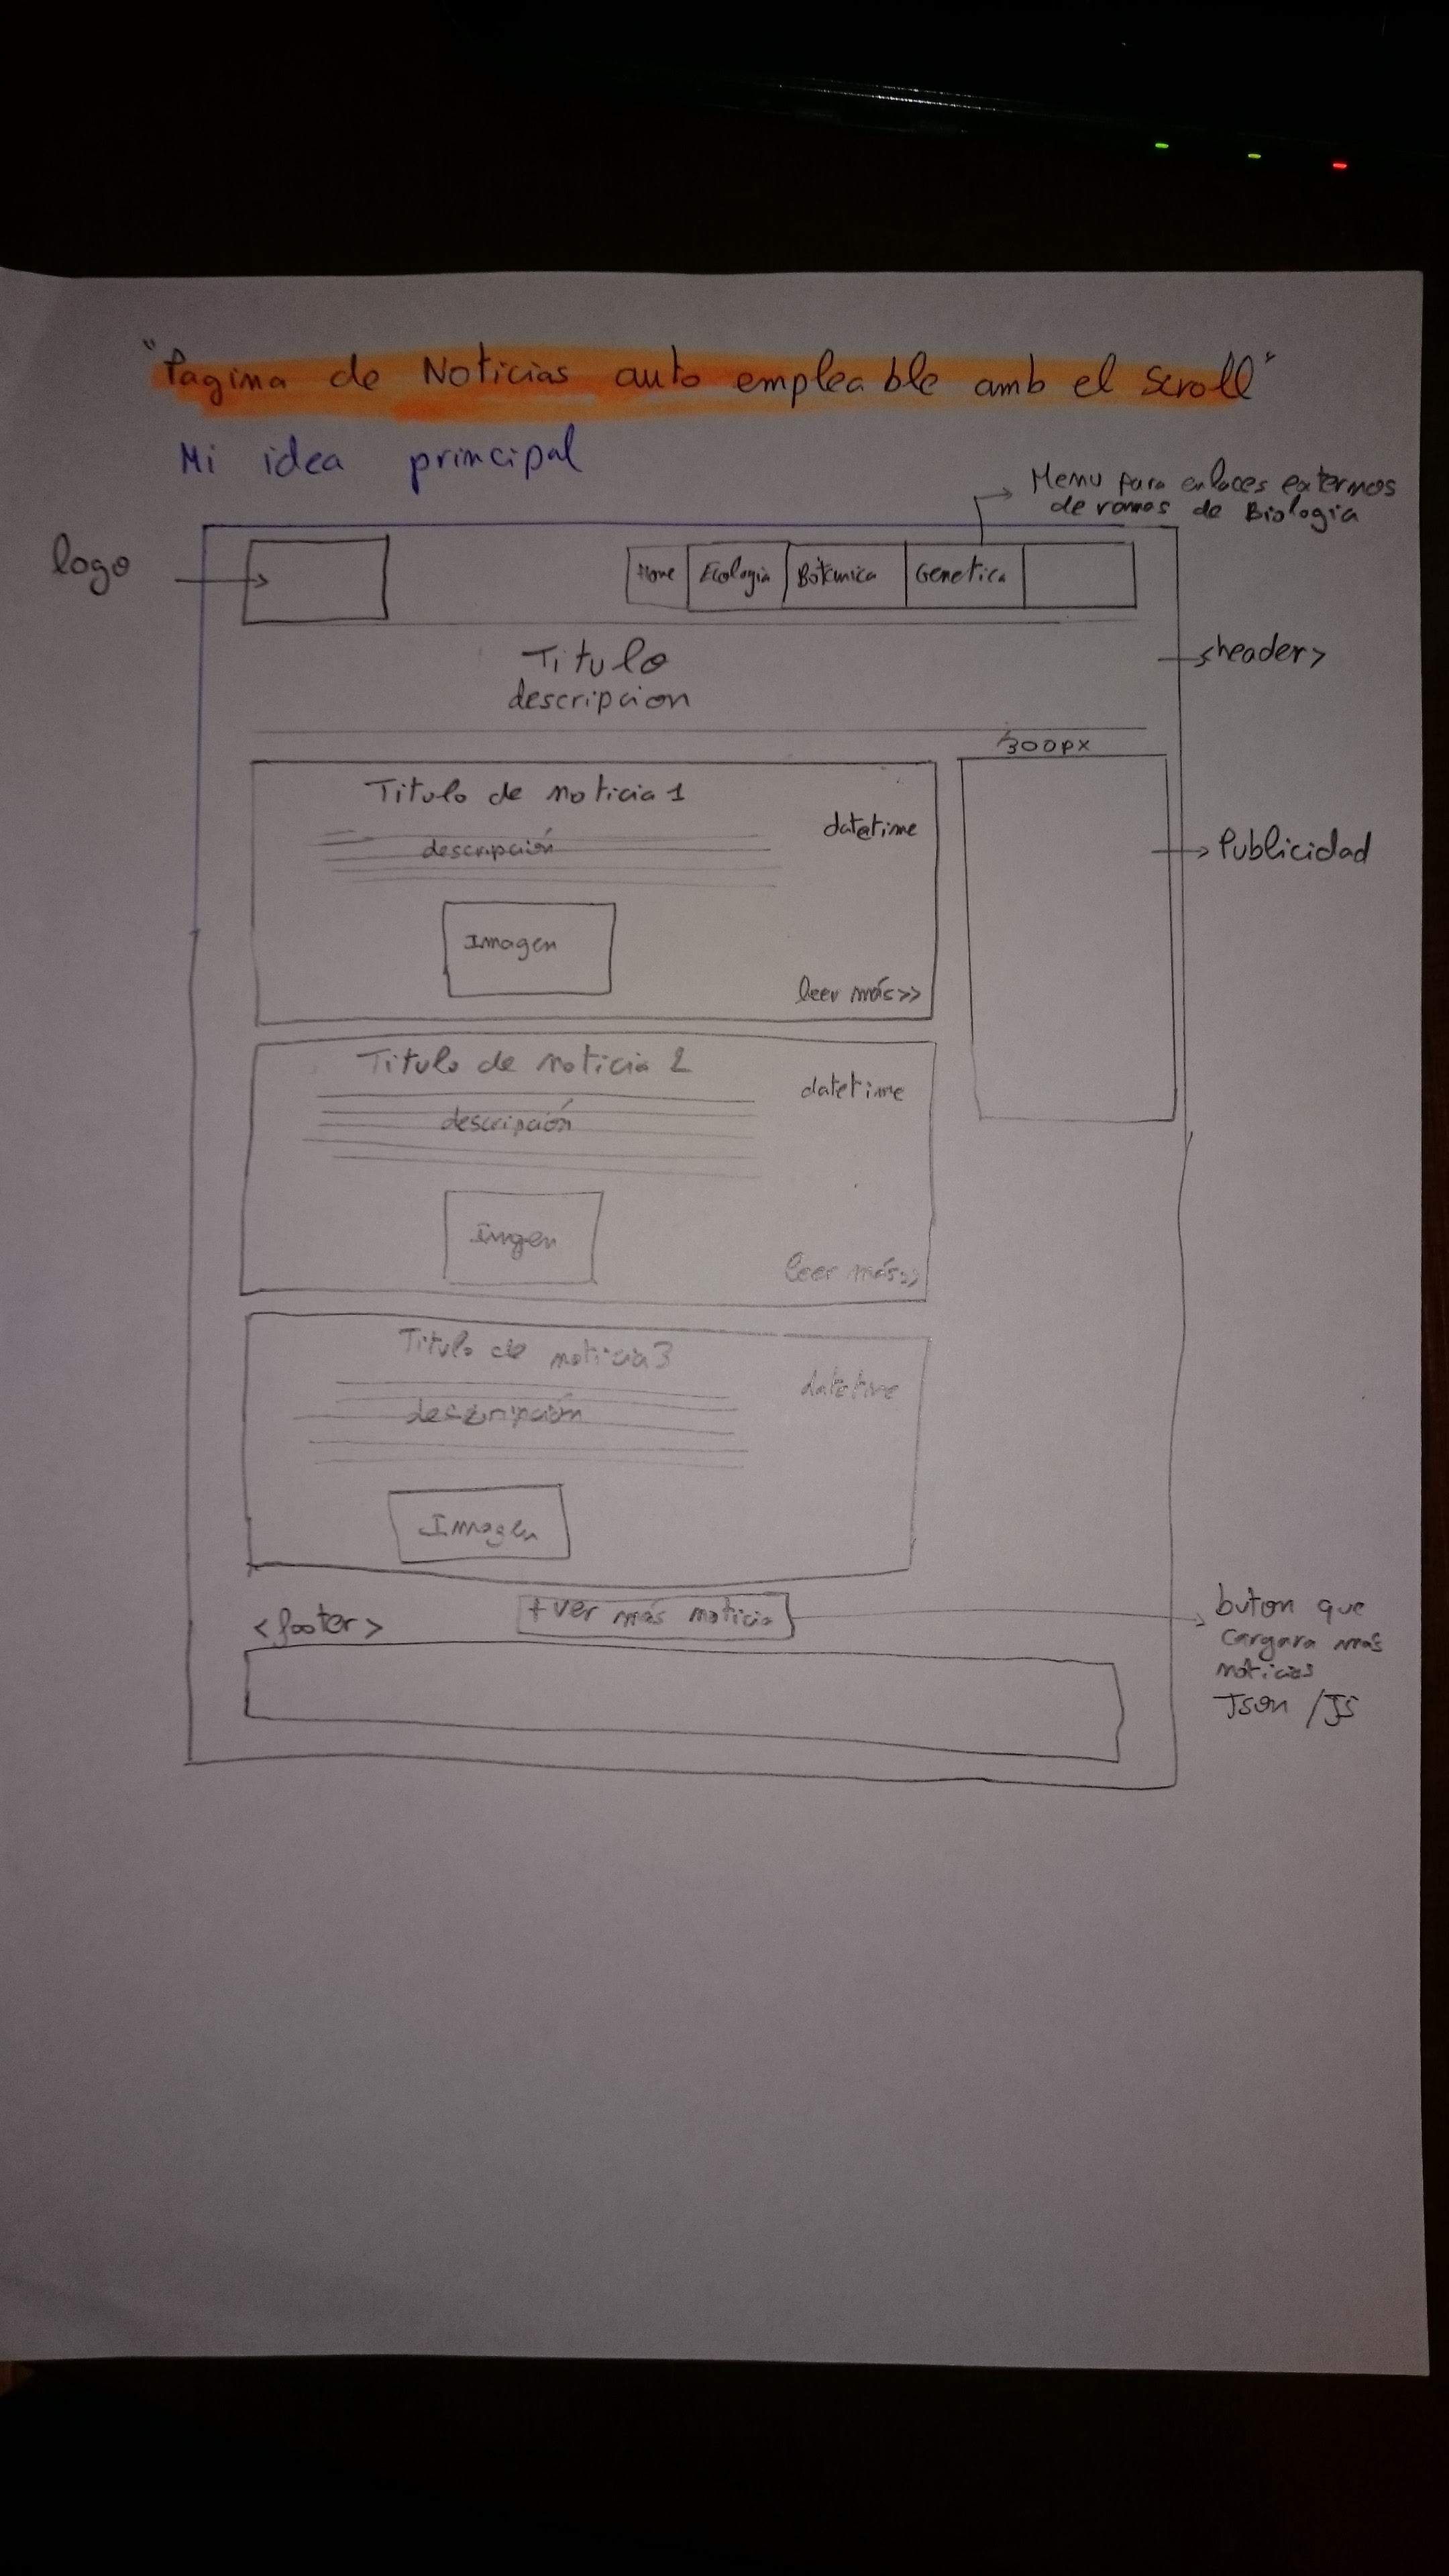 "Pagina de Noticias auto empleable amb el scroll"
Mi idea principal
Menu para enlaces externos
de ramas de Biologia
logo
Home Ecologia Botanica Genetica
Titulo
descripcion
<header>
300px
Titulo de noticia 1
datetime
descripción
Publicidad
Imagen
leer más>>
Titulo de noticia 2
datetime
descripción
Imgen
leer más>>
Titulo de noticia 3
datetime
descripción
Imagen
+ ver más noticia
<footer>
buton que
cargara mas
noticias
Json / JS